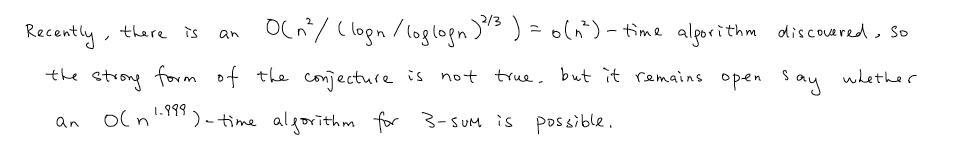 Recently, there is an O(n²/(logn/loglogn)^{2/3}) = o(n²)-time algorithm discovered, so
the strong form of the conjecture is not true. but it remains open say whether
an O(n^{1.999})-time algorithm for 3-SUM is possible.